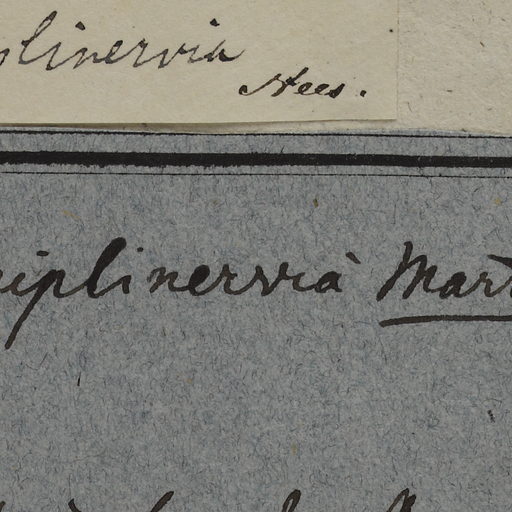 plinervia
Nees.
iplinervia Mart